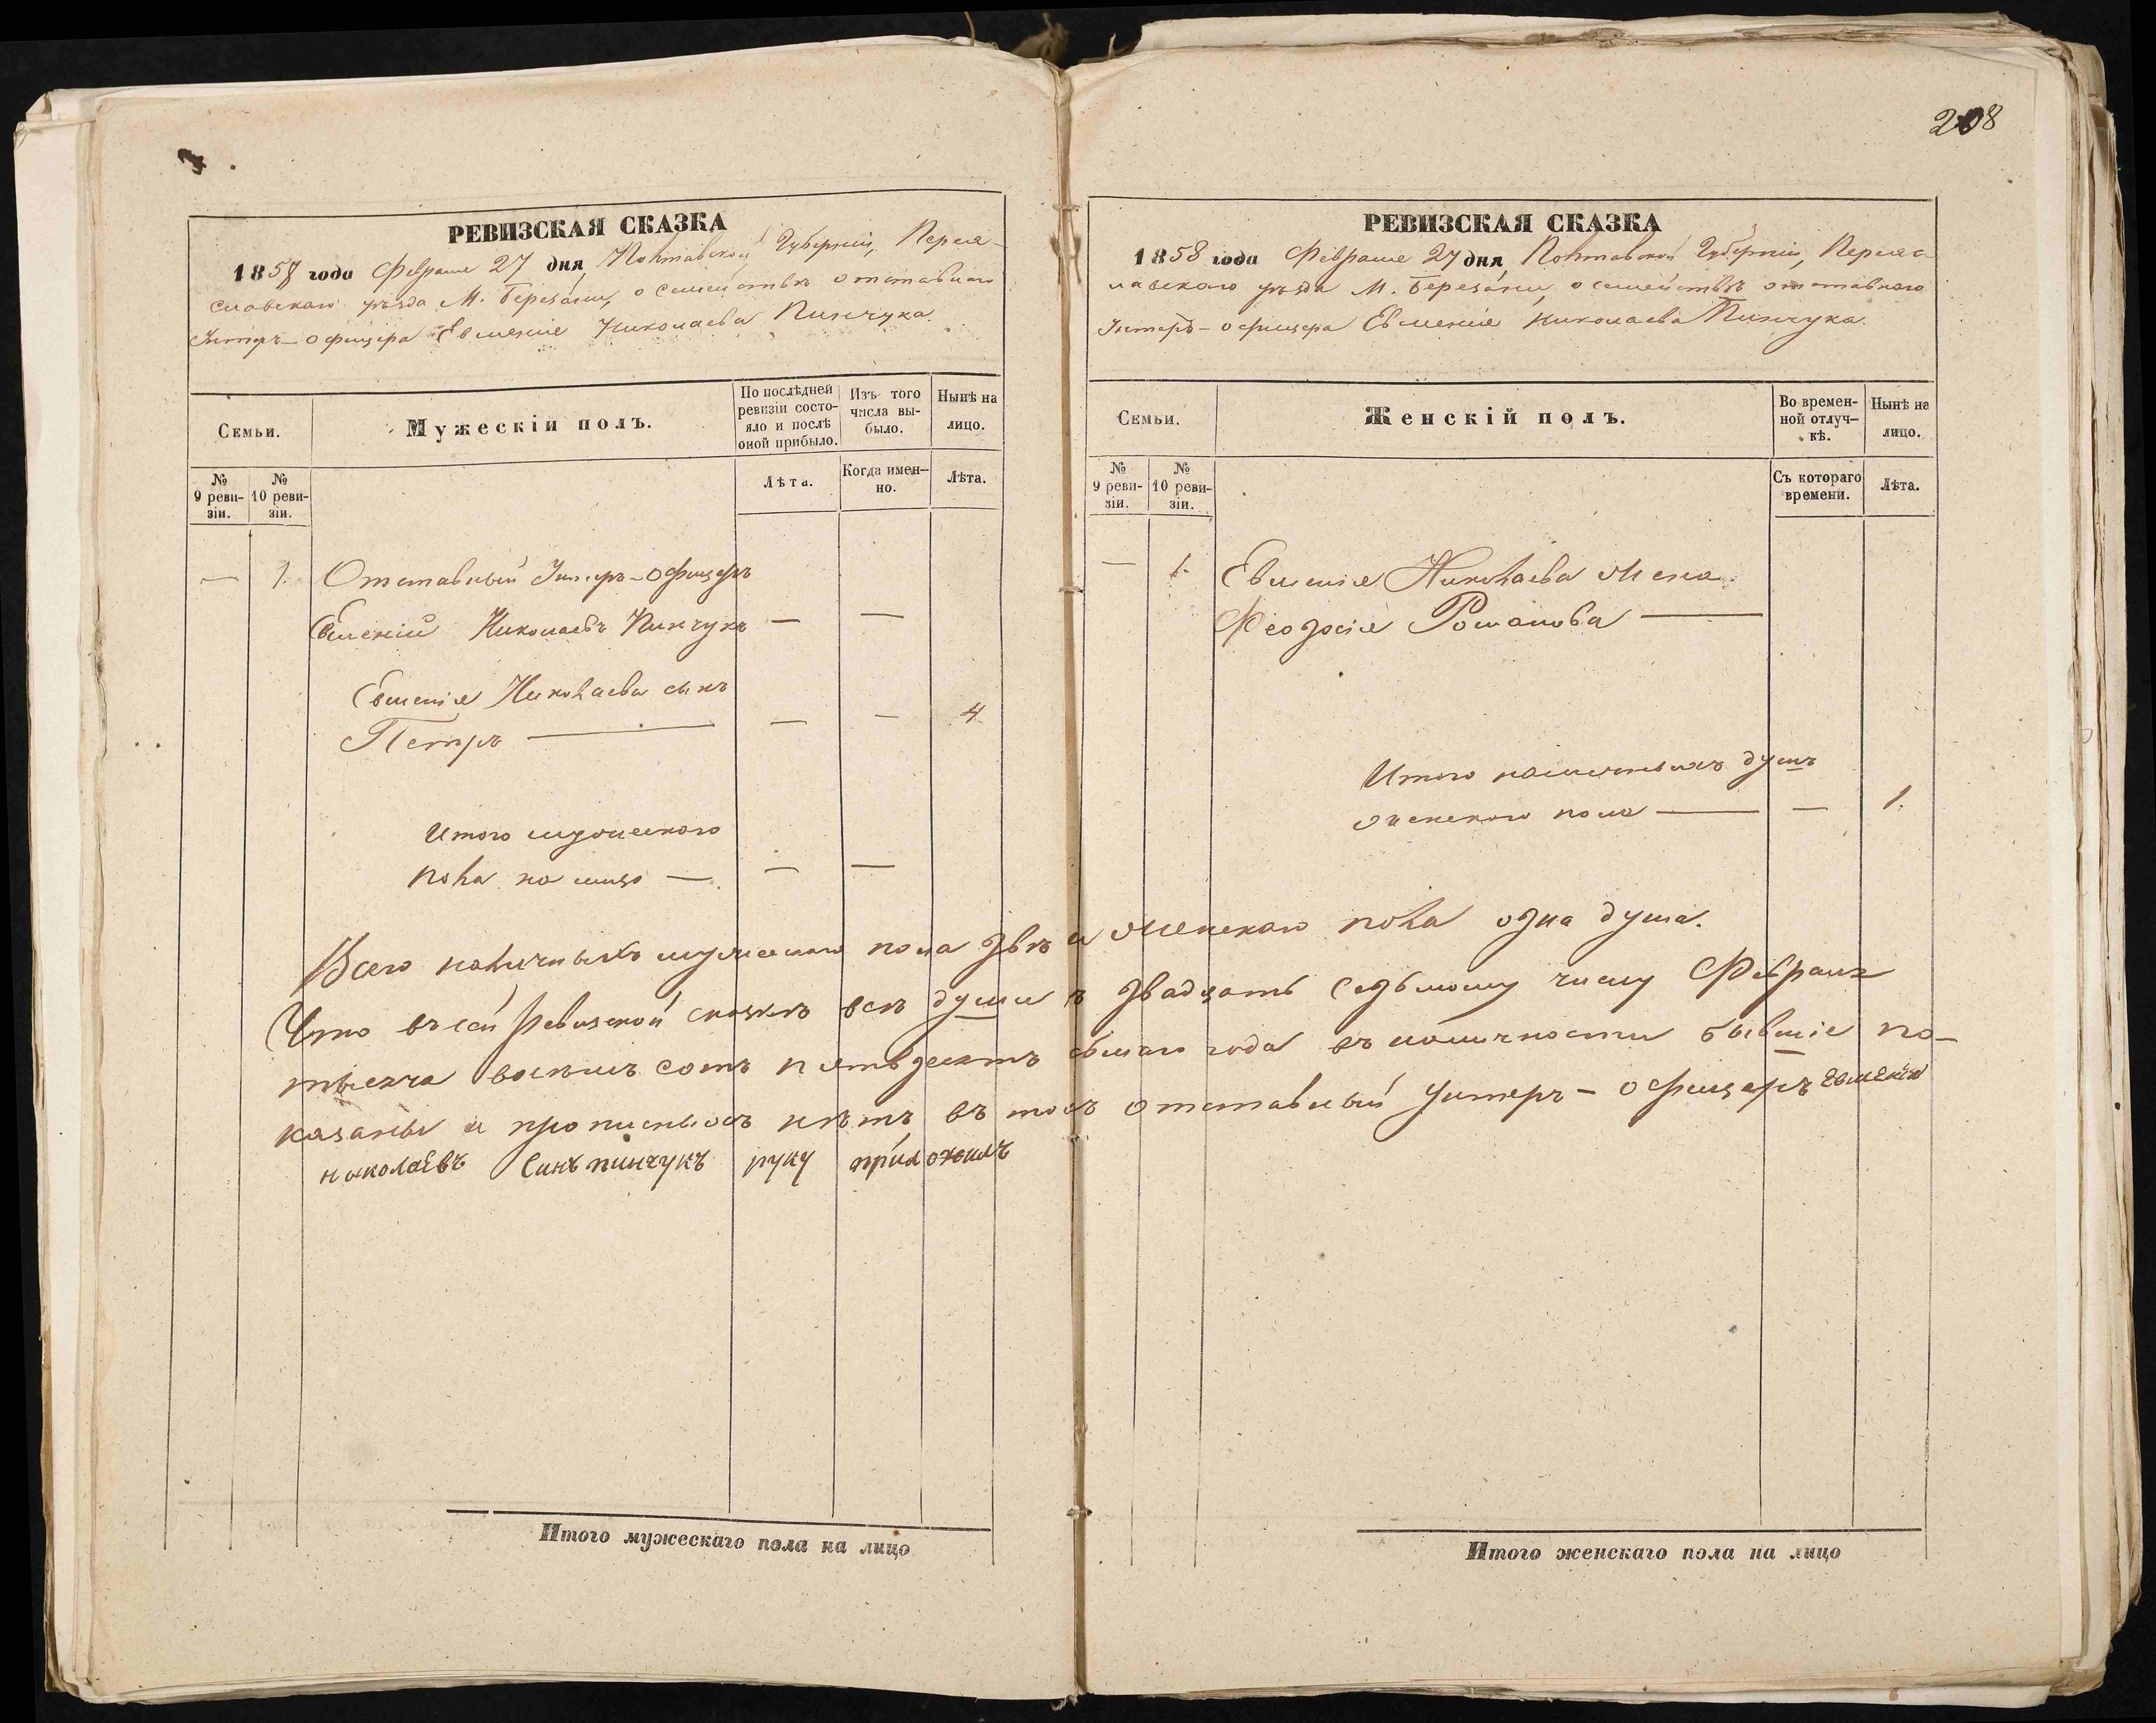 208
РЕВИЗСКАЯ СКАЗКА
1858 года Февраля 27 дня, Полтавской Губерніи, Перея-
славскаго уѣзда М. Березани, о семействѣ отставнаго
Унтеръ-офицера Евменія Николаева Пинчука.
Семьи.
Мужескій полъ.
По послѣдней
ревизіи состо-
яло и послѣ
оной прибыло.
Изъ того
числа вы-
было.
Нынѣ на
лицо.
№
9 реви-
зіи.
№
10 реви-
зіи.
Лѣта.
Когда имен-
но.
Лѣта.
— 1. Отставный Унтеръ-офицеръ
Евменій Николаевъ Пинчукъ — —
Евменія Николаева сынъ
Петръ — — — 4
Итого мужескаго
пола на лицо — — —
РЕВИЗСКАЯ СКАЗКА
1858 года Февраля 27 дня, Полтавской Губерніи, Переяс-
лавскаго уѣзда М. Березани, о семействѣ отставнаго
Унтеръ-офицера Евменія Николаева Пинчука.
Семьи.
Женскій полъ.
Во времен-
ной отлуч-
кѣ.
Нынѣ на
лицо.
№
9 реви-
зіи.
№
10 реви-
зіи.
Съ котораго
времени.
Лѣта.
— 1. Евменія Николаева жена
Феодосія Романова —
Итого наличныхъ душъ
женскаго пола — — 1.
Всего наличныхъ мужескаго пола двѣ и женскаго пола одна душа.
Что въ сей ревизской сказкѣ всѣ души къ двадцать седьмому числу Февраля
тысяча восемъ сотъ пятьдесятъ осьмаго года въ наличности бывшіе по-
казаны и прописныхъ нѣтъ, въ томъ отставный Унтеръ-офицеръ Евменій
николаевъ Синъ пинчукъ руку приложилъ
Итого мужескаго пола на лицо
Итого женскаго пола на лицо